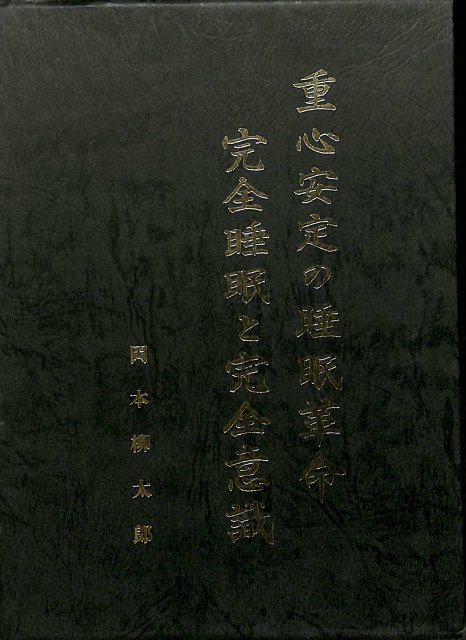 重心安定の睡眠革命
完全睡眠と完全意識
岡本柳太郎